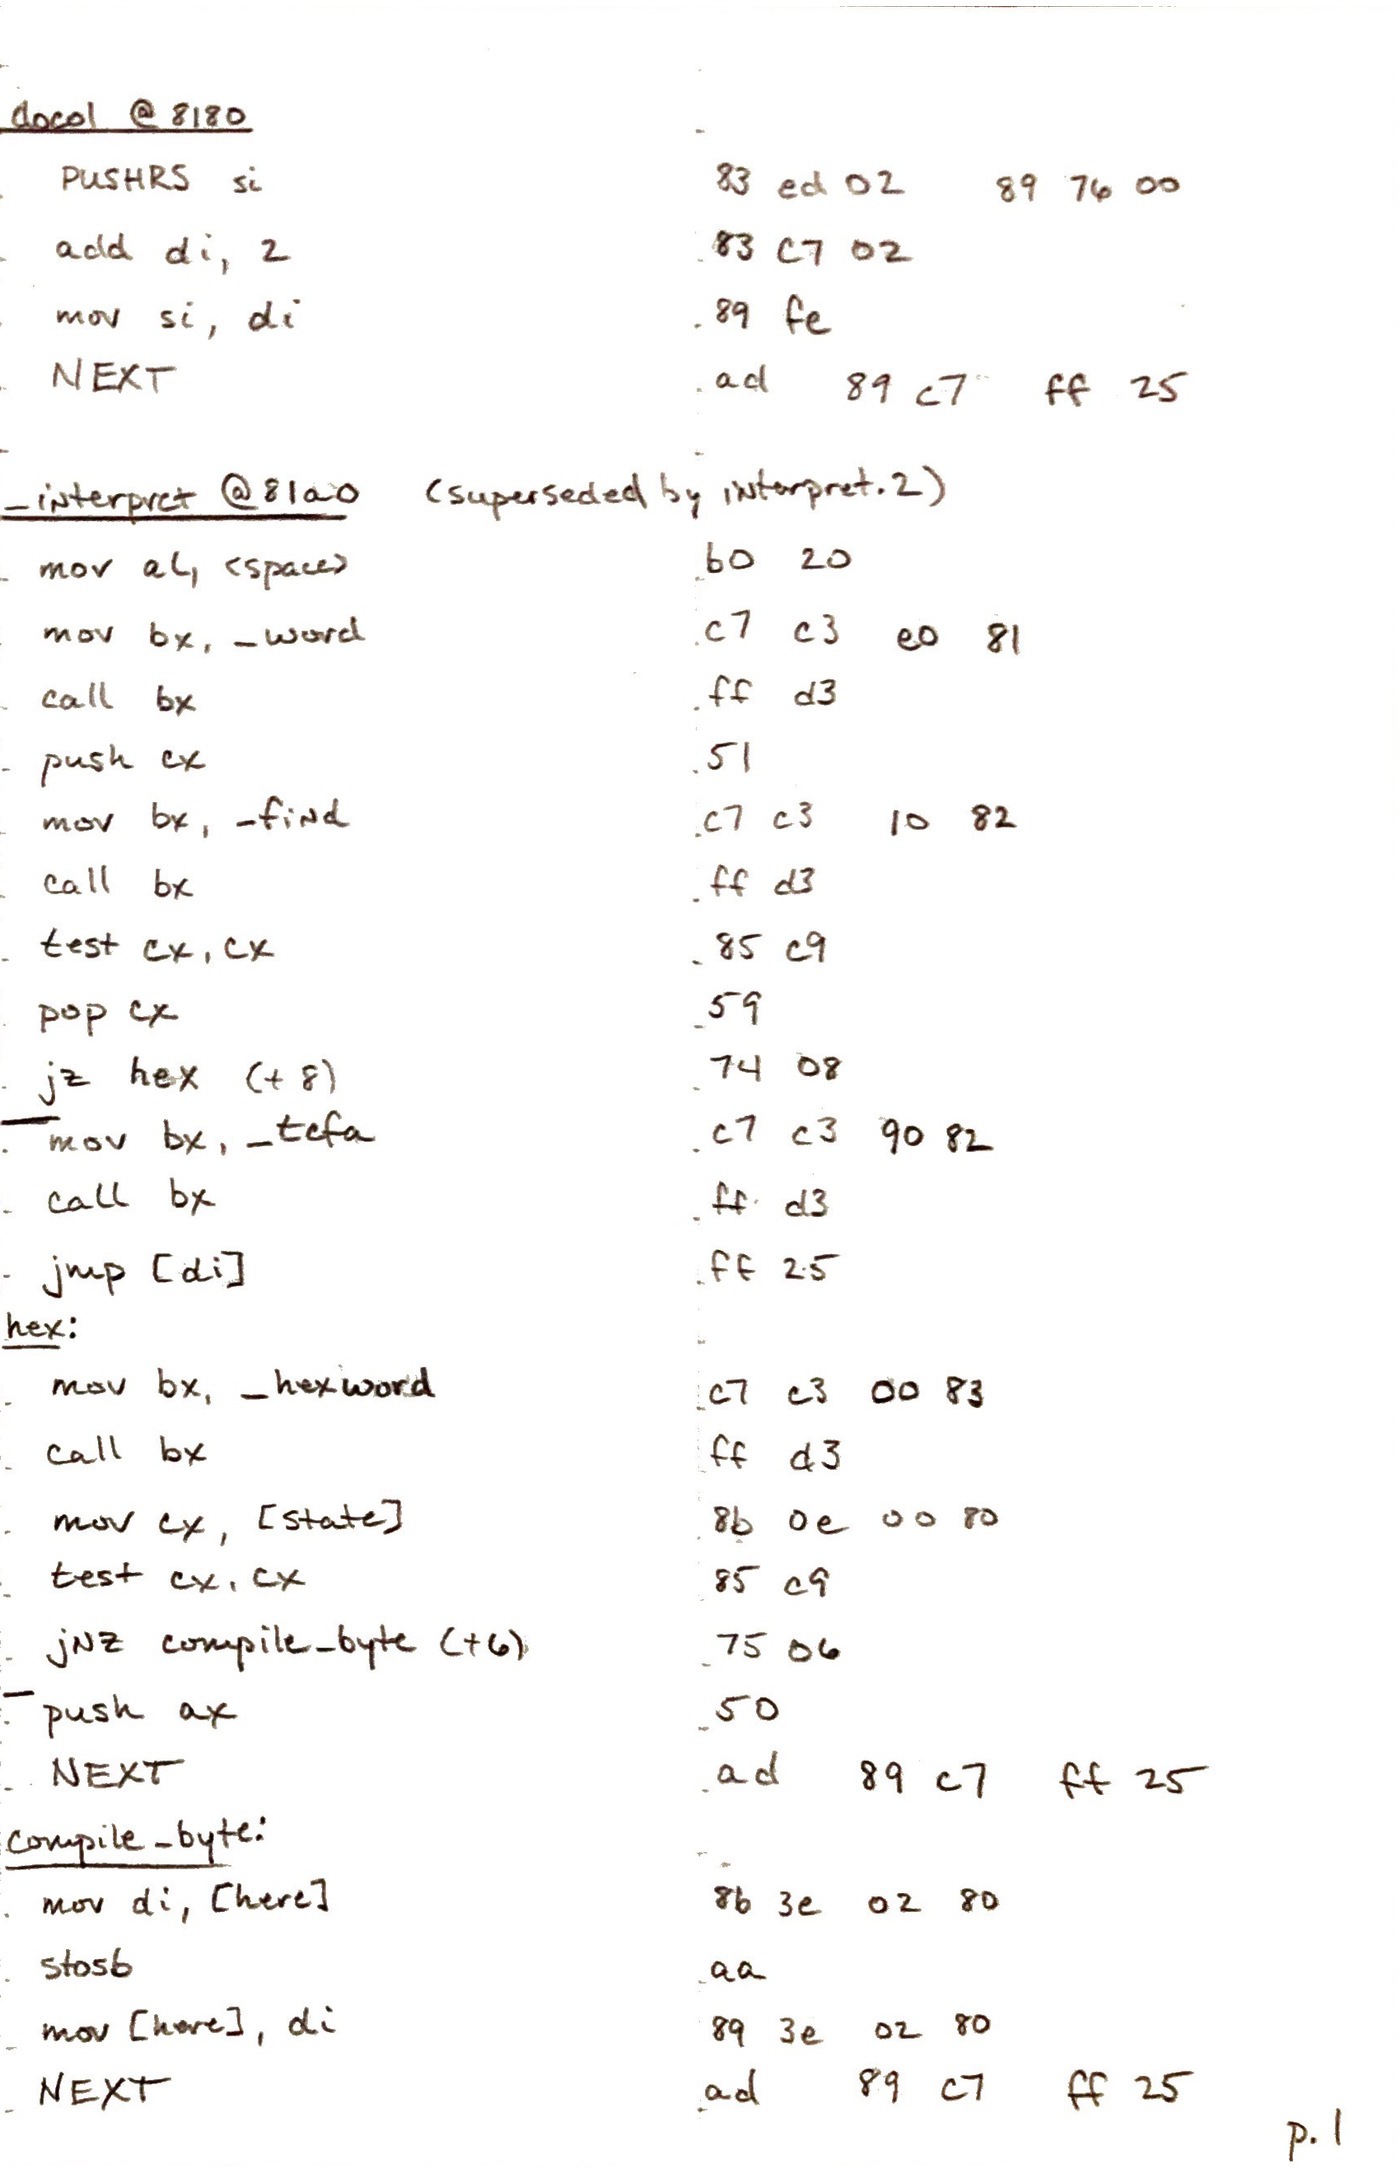 docol @ 8180
PUSHRS si 83 ed 02 89 76 00
add di, 2 83 c7 02
mov si, di 89 fe
NEXT ad 89 c7 ff 25
_interpret @ 81a0 (superseded by interpret.2)
mov al, <space> b0 20
mov bx, _word c7 c3 e0 81
call bx ff d3
push cx 51
mov bx, _find c7 c3 10 82
call bx ff d3
test cx, cx 85 c9
pop cx 59
jz hex (+8) 74 08
mov bx, _tcfa c7 c3 90 82
call bx ff d3
jmp [di] ff 25
hex:
mov bx, _hexword c7 c3 00 83
call bx ff d3
mov cx, [state] 8b 0e 00 80
test cx, cx 85 c9
jnz compile_byte (+6) 75 06
push ax 50
NEXT ad 89 c7 ff 25
compile_byte:
mov di, [here] 8b 3e 02 80
stosb aa
mov [here], di 89 3e 02 80
NEXT ad 89 c7 ff 25
p. 1